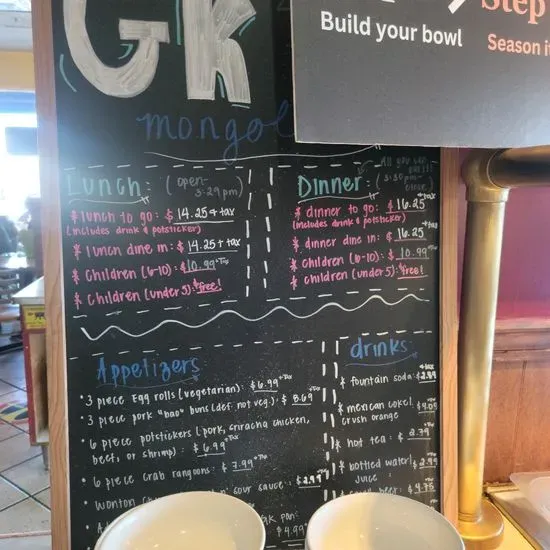 GK
mongol
Step
Build your bowl
Season i
Lunch: (open-
3:29pm)
* lunch to go: $ 14.25 + tax
(includes drink & potsticker)
* lunch dine in: $ 14.25 + tax
* children (6-10): $10.99 + Tax
* children (under 5): $free!
All you can
Dinner: (3:30pm-
close)
* dinner to go: $ 16.25
(includes drink & potsticker)
* dinner dine in: $ 16.25
* children (6-10): $ 10.99
* children (under 5): $free!
Appetizers:
• 3 piece Egg rolls (vegetarian): $ 6.99 + Tax
• 3 piece pork "bao" buns (def. not veg.): $ 8.69 + Tax
• 6 piece potstickers (pork, sriracha chicken,
beef, or shrimp): $ 6.99 + Tax
• 6 piece crab rangoons: $ 7.99 + Tax
wonton sour sauce: $2.99
GK pan:
$4.99
drinks:
* fountain soda: $2.89 + tax
* mexican coke/
crush orange
* hot tea: $ 2.79
* bottled water/ $2.99
juice
beer: $4.75